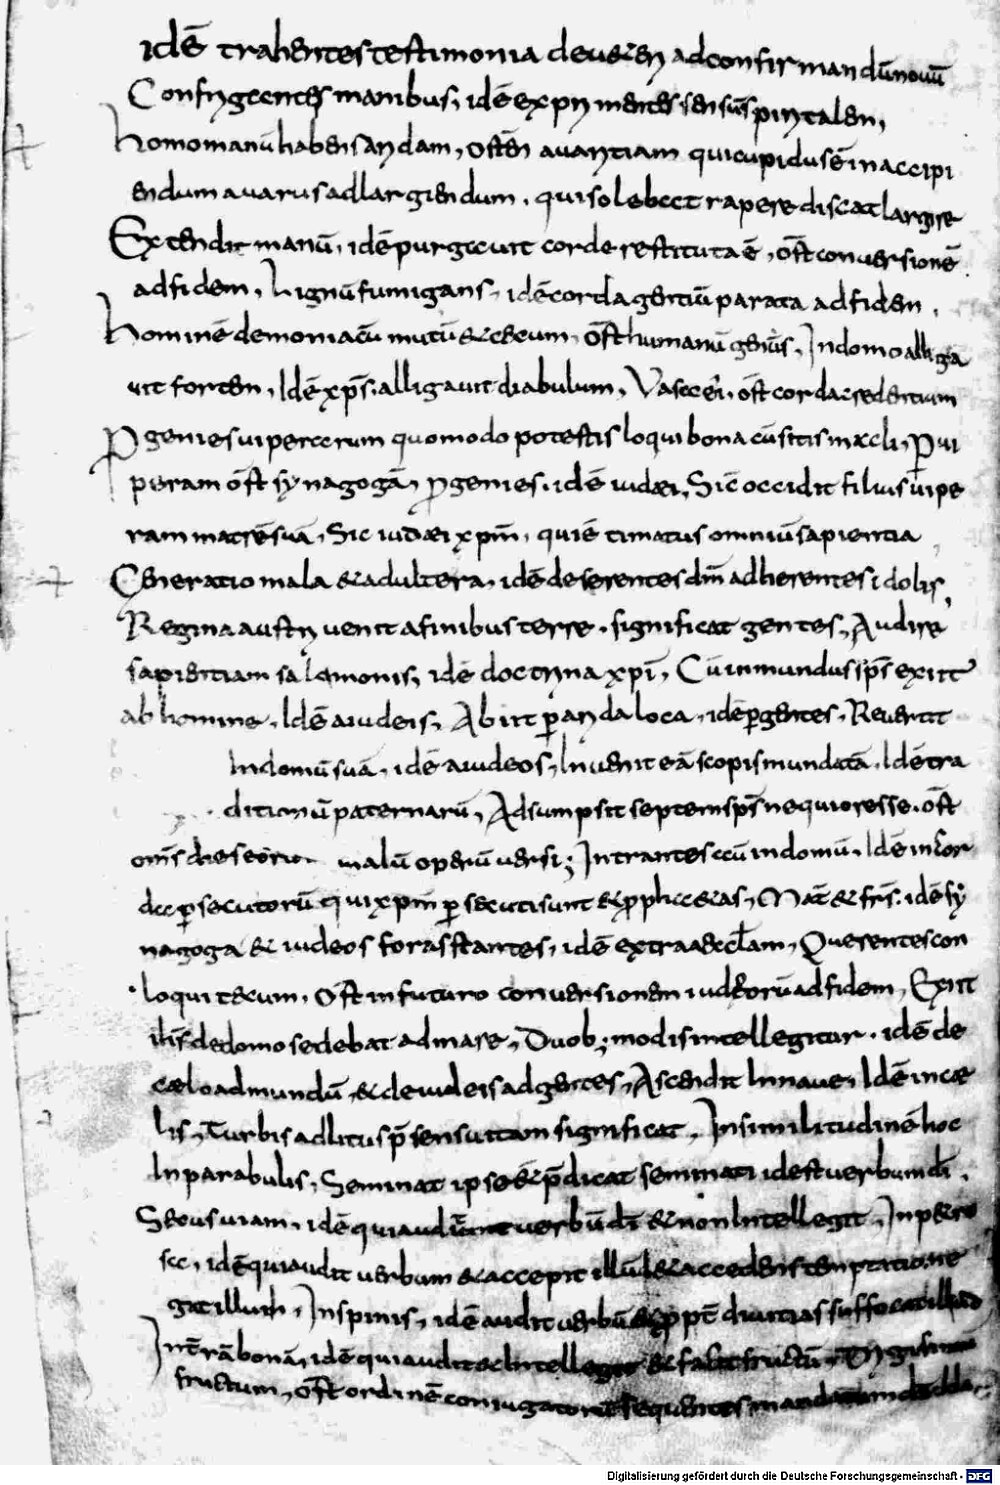 idē trahentes testimonia deuet&eri ad confirmandū nouū
Confrigcentes manibus, idē exprimentes sensus spiritalen,
homo manū habens aridam, ostēn auaritiam qui cupidus ē in accipi
endum auarus ad largiendum, qui solebat rapere discat largire
Extendit manū, idē purgauit corde restituta ē, ōst conuersionē
ad fidem, Lignū fumigans, idē corda gentiū parata ad fiden,
hominē demoniacū mutū & cecum, ōst humanū genus, In domo alliga
uit forten, Idē xp̄s alligauit diabulum, Vasa ei, ōst corda credentium
P̱genies uipercerum quomodo potestis loqui bona cū sitis mali, P̱ ui
peram ōst synagogā, p̱genies, idē iudæi, Sic occidit filius uipe
ram matrē suā, Sic iudæi xp̄m, qui ē omniū sapientia
Generatio mala & adultera, idē deserentes dm̄ adherentes idolis,
Regina austri uenit a finibus terre, significat gentes, Audire
sapientiam salemonis, idē doctrina xp̄i, Cū inmundus sp̄s exiit
ab homine, Idē a iudeis, Abiit p̱ arida loca, idē p̱ gentes, Reuertit
In domū suā, idē a iudeos, Inuenit eā scopis mundatā, Idē tra
ditionū paternarū, Adsumpsit septem sp̄s nequiores se, ōst
malū operū uersi; Intrantes in domū, Idē in cor
p̱secutorū qui xp̄m p̱secuti sunt & p̱ph&as, Mat̄ & fr̄s, idē sy
nagoga & iudeos foras stantes, idē extra æccl̄am, Querentes con
loqui tecum, ōst in futuro conuersionen iudeorū ad fidem, Exiit
ih̄s de domo sedebat ad mare, Duob; modis intellegitur, idē de
cælo ad mundū, & de iudeis ad gentes, Ascendit In naue, Idē in cæ
lis, Turbis ad litus p̄sens uitam significat, In similitudinē hoc
In parabulis, Seminat ipse & p̄dicat seminati id est uerbum dī,
Secus uiam, idē qui audiunt uerbū dī & non Intellegit, In p&ro
sa, idē qui audit uerbum & accepit illūd & accedens temptatio ne
gat illuth, In spinis, idē audit uerbū & p̱pt̄ diuitias suffocat illud
In t̄rā bonā, idē qui audit & Intellegit & fructū,
fructum, ōst ordinē coniugatorū sequentes
Digitalisierung gefördert durch die Deutsche Forschungsgemeinschaft - DFG